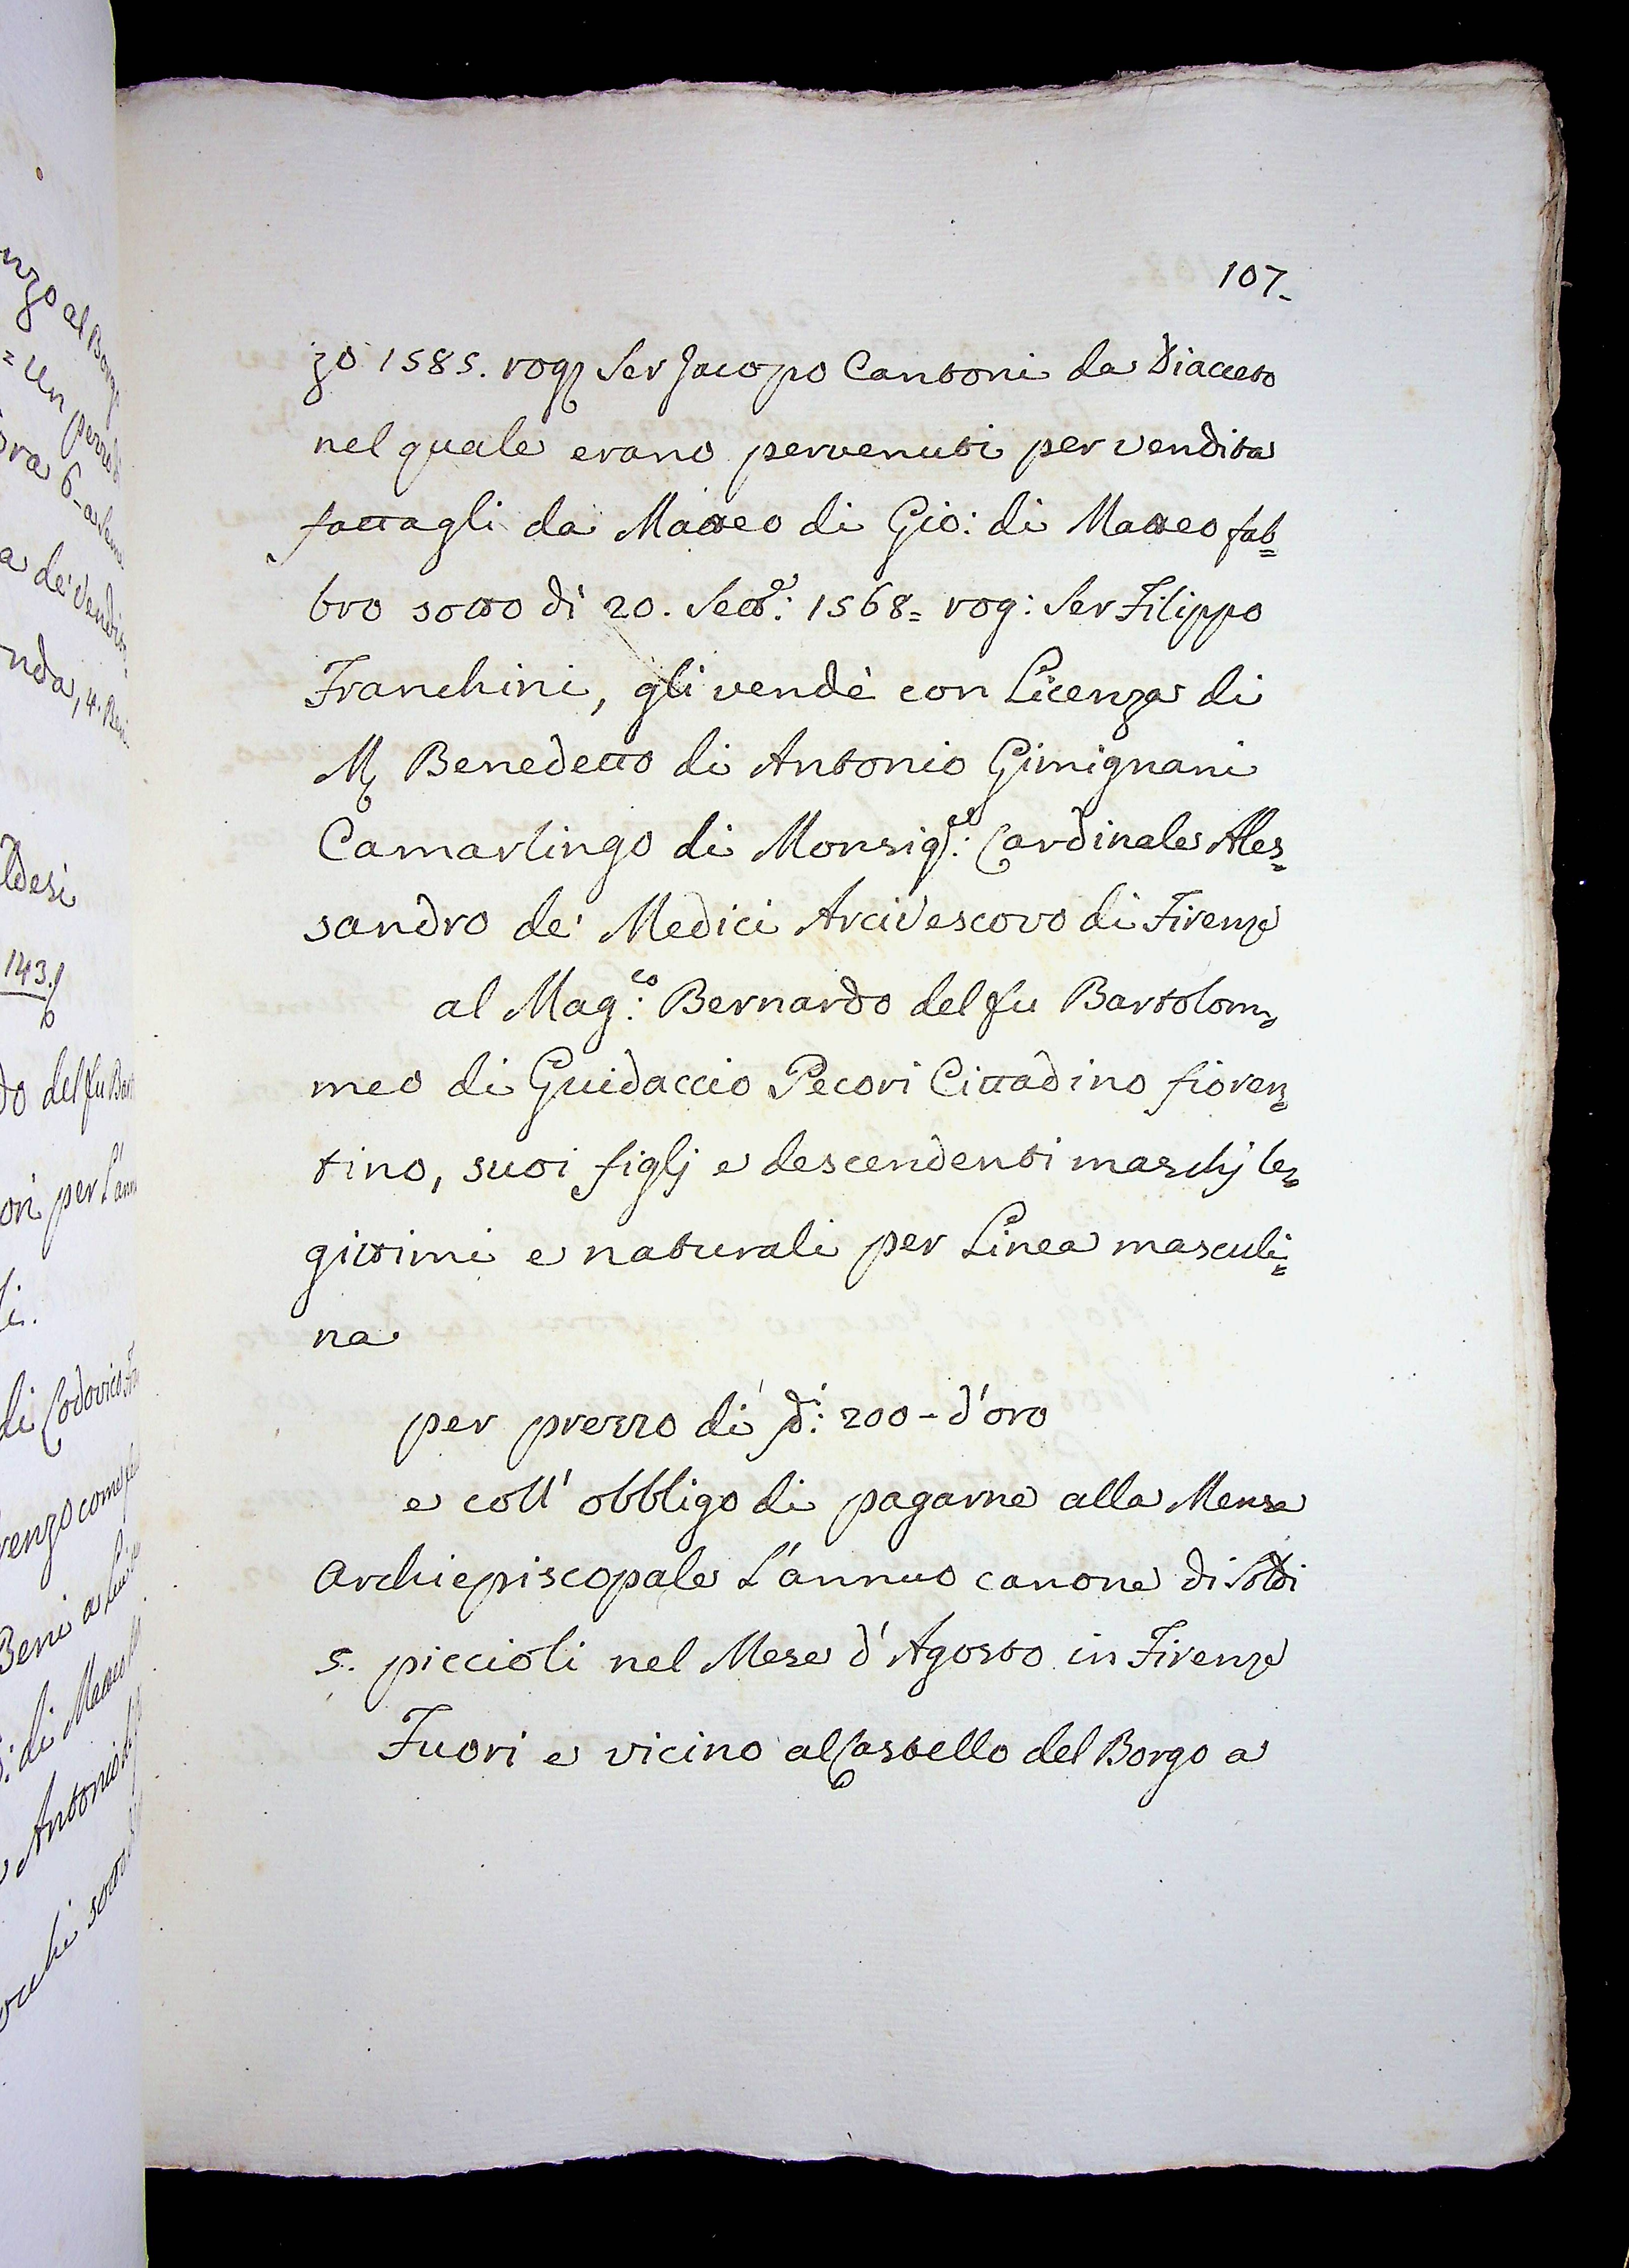 107.
zo 1585. rog. Ser Jacopo Cantoni da Diacceto
nel quale erano pervenuti per vendita
fattagli da Matteo di Gio: di Matteo fab=
bro sotto dì 20. Sett.e: 1568= rog: Ser Filippo
Franchini, gli vendè con Licenza di
M. Benedetto di Antonio Gimignani
Camarlingo di Monsig.e: Cardinale Ales=
sandro de' Medici Arcivescovo di Firenze
al Mag.co: Bernardo del fu Bartolom=
meo di Guidaccio Pecori Cittadino fioren=
tino, suoi figlj e descendenti maschj le=
gittimi e naturali per Linea masculi=
na
per prezzo di 200 - d'oro
e coll' obbligo di pagarne alla Mensa
Archiepiscopale L'annuo canone di Soldi
5. piccioli nel Mese d'Agosto in Firenze
Fuori e vicino al Castello del Borgo a
nzo al Borgo
= Un
ora 6
a de'
nda, 4. Beni
ldesi
143.
do del fu
ori per L'ann
di Lodovico
renzo come
Beni a
di Matteo
Antonio